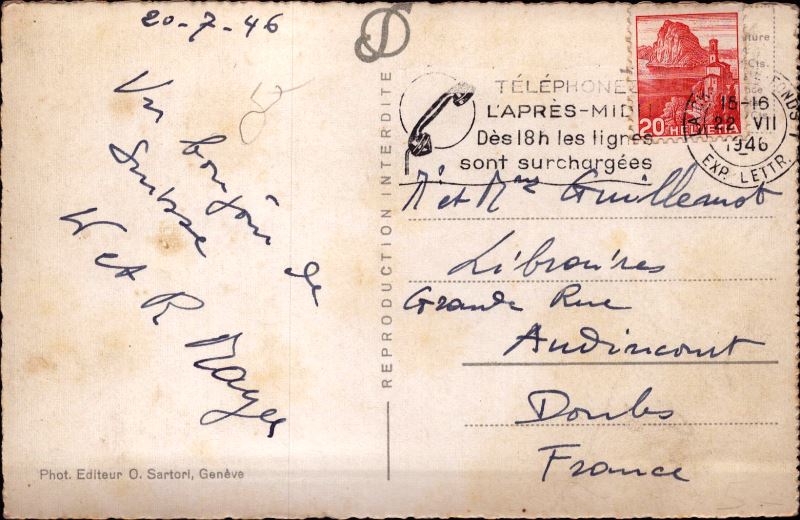 20-7-46
Un bonjour de
Suisse
W et R Mayer
Phot. Editeur O. Sartori, Genève
REPRODUCTION INTERDITE
TÉLÉPHONEZ
L'APRÈS-MIDI
Dès 18h les lignes
sont surchargées
20 HELVETIA
15-16
22. VII
1946
EXP. LETTR.
Mr et Mme Guilleanot
Libraires
Grande Rue
Audincourt
Doubs
France